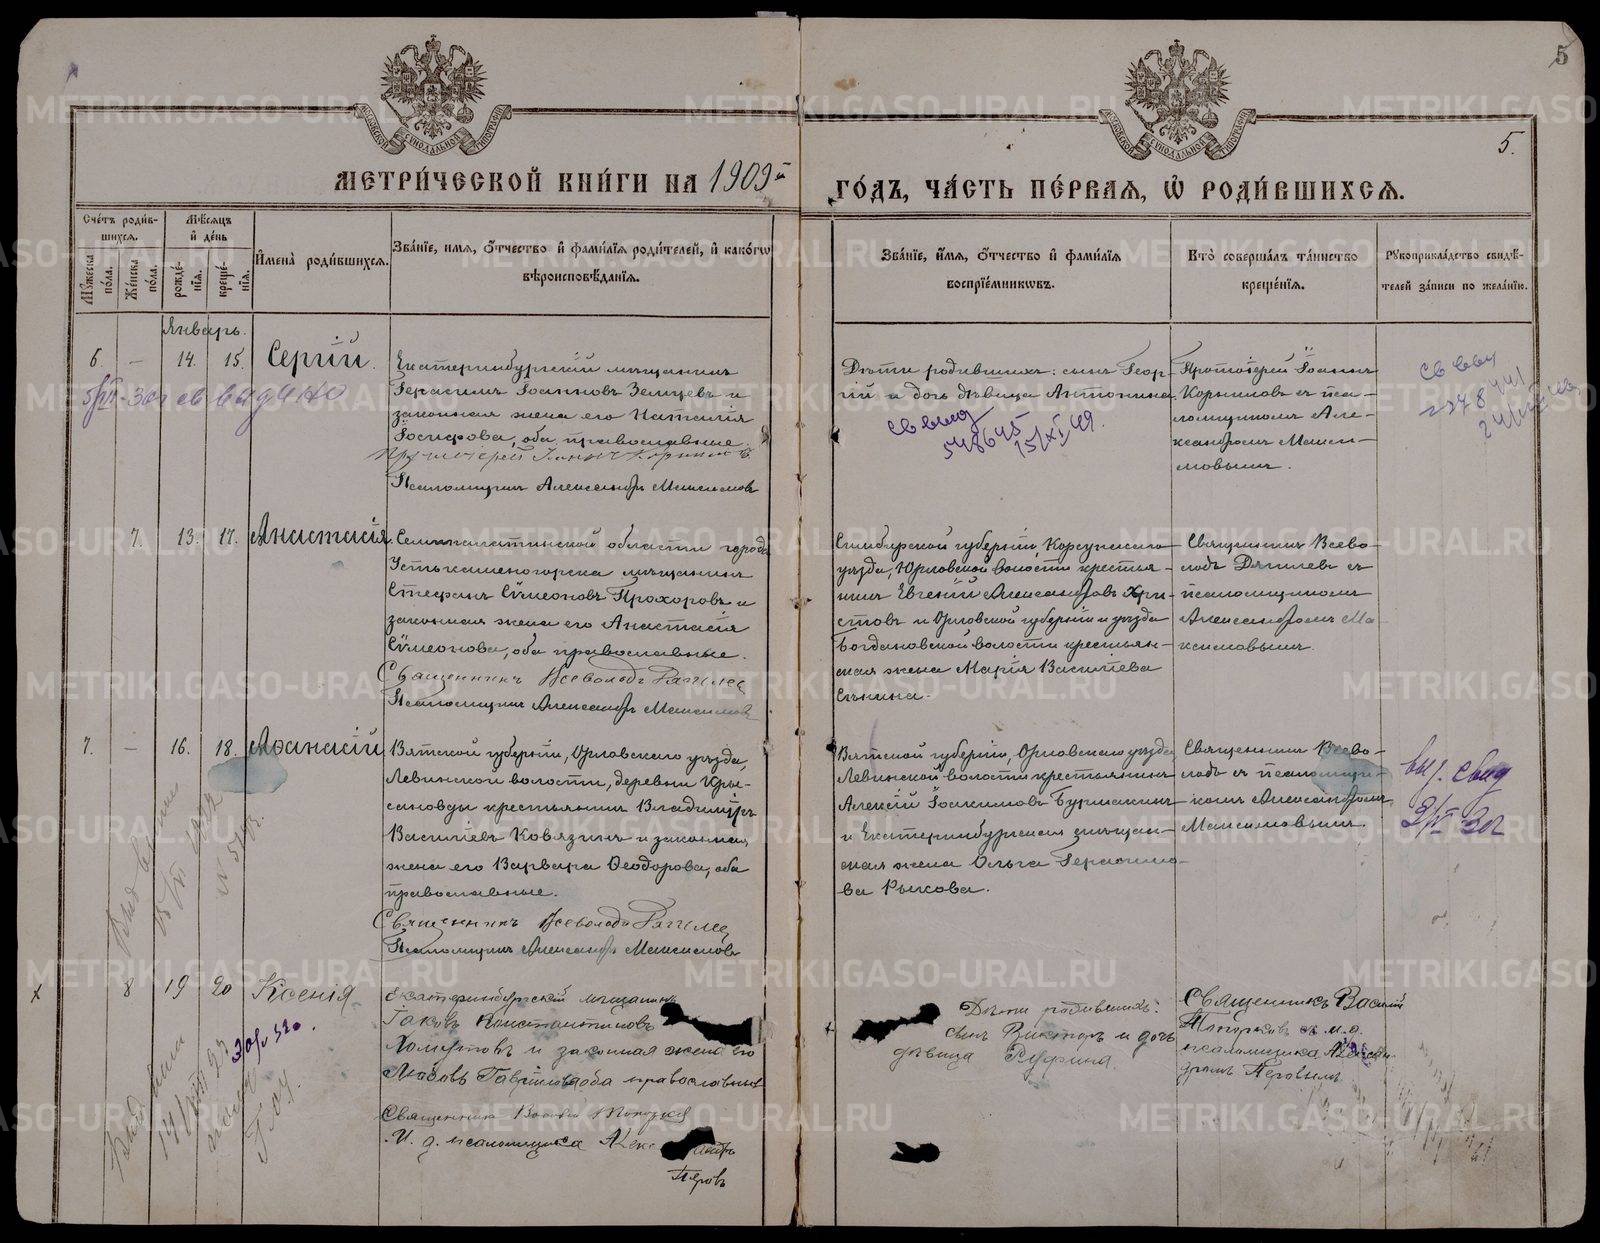 5
5.
МЕТРИ́ЧЕСКОЙ КНИ́ГИ НА 1909й
ГО́ДЪ, ЧА́СТЬ ПЕ́РВАЯ, Ѡ҆ РОДИ́ВШИХСЯ.
Сче́тъ роди́в-
шихся.
Му́жеска по́ла.
Же́нска по́ла.
Мѣ́сяцъ
и҆ де́нь
рожде́-
нїя.
креще́-
нїя.
И҆мена̀ роди́вшихся.
Зва́нїе, имя, о҆́тчество и҆ фами́лїя роди́телей, и҆ како́гѡ
вѣроисповѣ́данїя.
Зва́нїе, и҆́мя, о҆́тчество и҆ фами́лїя
воспрїе́мникѡвъ.
Кто̀ соверша́лъ та́инство
креще́нїя.
Рꙋкоприкла́дство свидѣ́-
телей за́писи по жела́нїю.
Январь.
6. — 14. 15. Сергій.
Екатеринбургскій мѣщанинъ
Герасимъ Іоанновъ Зельцевъ и
законная жена его Наталія
Іосифова, оба православные.
Протоіерей Іоаннъ Корниловъ
Псаломщикъ Александръ Максимовъ
Дѣти родившихъ: сынъ Геор-
гій и дочь дѣвица Антонина
Протоіерей Іоаннъ
Корниловъ съ пса-
ломщикомъ Але-
ксандромъ Макси-
мовымъ.
7. 13. 17. Анастасія
Семипалатинской области города
Устькаменогорска мѣщанинъ
Стефанъ Сѵмеоновъ Прохоровъ и
законная жена его Анастасія
Сѵмеонова, оба православные.
Священникъ Всеволодъ
Псаломщикъ Александръ Максимовъ
Симбирской губерніи, Корсунскаго
уѣзда, Юрловской волости крестья-
нинъ Евгеній Александровъ Хри-
стовъ и Орловской губерніи и уѣзда
Богдановской волости крестьян-
ская жена Марія Васильева
Священникъ Всево-
лодъ съ
псаломщикомъ
Александромъ Ма-
ксимовымъ.
7. — 16. 18. Аѳанасій
Вятской губерніи, Орловскаго уѣзда,
Левинской волости, деревни
крестьянинъ Владиміръ
Васильевъ Ковязинъ и законная
жена его Варвара Ѳеодорова, оба
православные.
Священникъ Всеволодъ
Псаломщикъ Александръ Максимовъ
Вятской губерніи, Орловскаго уѣзда
Левинской волости крестьянинъ
Алексій Іоакимовъ Бурмакинъ
и Екатеринбургская мѣщан-
ская жена Ольга Герасимо-
ва Рыкова.
Священникъ Всево-
лодъ съ псаломщи-
комъ Александромъ
Максимовымъ.
выд. свид
8 19 20 Ксенія
Екатеринбургскій мѣщанинъ
Іаковъ Константиновъ
Хомутовъ и законная жена его
Любовь Гавріилова оба православные
Священникъ Василій Топорковъ
И. д. псаломщика
Перовъ
Дѣти родившихъ:
сынъ Викторъ и дочь
дѣвица Руфина.
Священникъ Василій
Топорковъ съ и. д.
псаломщика Алексан-
дромъ Перовымъ.
METRIKI.GASO-URAL.RU